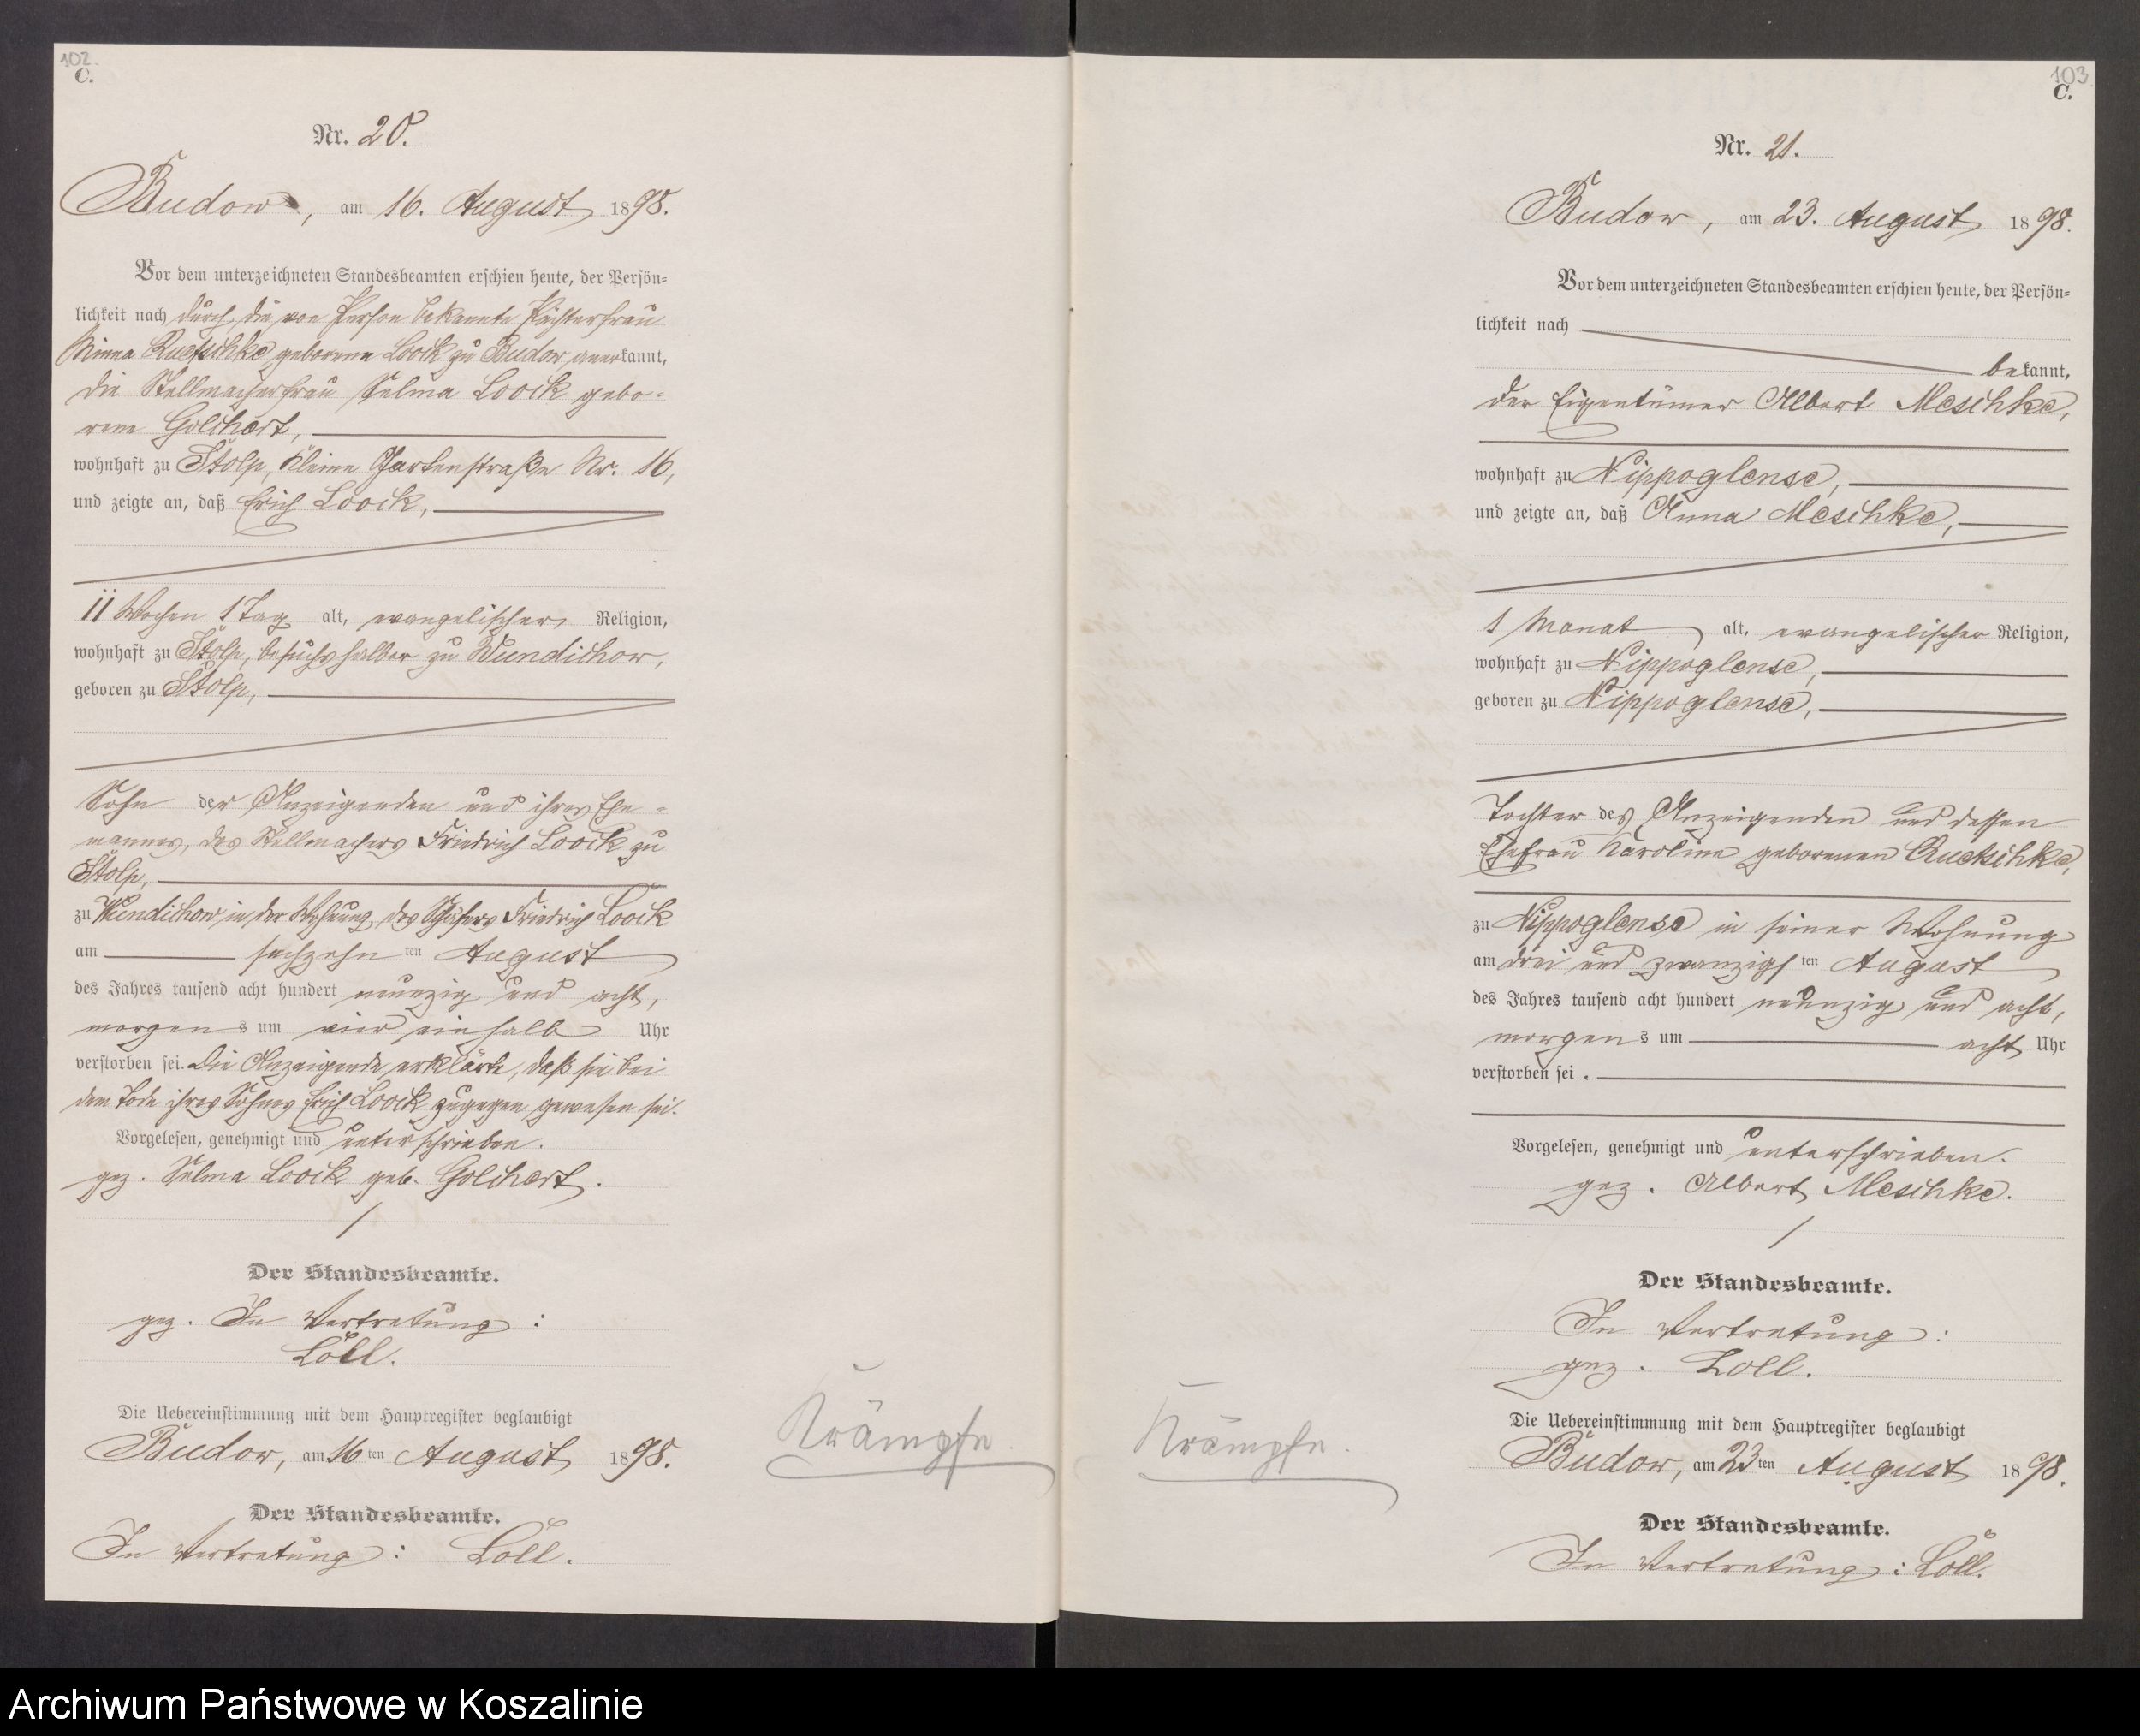 102.
C.
Nr. 20.
Budow, am 16. August 1898.
Vor dem unterzeichneten Standesbeamten erschien heute, der Persön-
lichkeit nach durch die von Person bekannte Pächterfrau
Minna Quetschke geborene Loock zu Budow anerkannt,
die Stellmacherfrau Selma Loock gebo-
rene Golchert,
wohnhaft zu Stolp, kleine Gartenstraße Nr. 16,
und zeigte an, daß Erich Loock,
11 Wochen 1 Tag alt, evangelischer Religion,
wohnhaft zu Stolp, besuchshalber zu Wundichow,
geboren zu Stolp,
Sohn der Anzeigenden und ihres Ehe-
mannes, des Stellmachers Friedrich Loock zu
Stolp,
zu Wundichow in der Wohnung des Schäfers Friedrich Loock
am sechzehnten August
des Jahres tausend acht hundert neunzig und acht,
morgens um vier einhalb Uhr
verstorben sei. Die Anzeigende erklärte, daß sie bei
dem Tode ihres Sohnes Erich Loock zugegen gewesen sei.
Vorgelesen, genehmigt und unterschrieben.
gez. Selma Loock geb. Golchert.
Der Standesbeamte.
gez. In Vertretung:
Löll.
Die Uebereinstimmung mit dem Hauptregister beglaubigt
Budow, am 16ten August 1898.
Der Standesbeamte.
In Vertretung: Löll.
Krämpfe
103
C.
Nr. 21.
Budow, am 23. August 1898.
Vor dem unterzeichneten Standesbeamten erschien heute, der Persön-
lichkeit nach
bekannt,
der Eigentümer Albert Meschke,
wohnhaft zu Nippoglense,
und zeigte an, daß Anna Meschke,
1 Monat alt, evangelischer Religion,
wohnhaft zu Nippoglense,
geboren zu Nippoglense,
Tochter des Anzeigenden und dessen
Ehefrau Karoline geborenen Quetschke,
zu Nippoglense in seiner Wohnung
am drei und zwanzigsten August
des Jahres tausend acht hundert neunzig und acht,
morgens um acht Uhr
verstorben sei.
Vorgelesen, genehmigt und unterschrieben.
gez. Albert Meschke.
Der Standesbeamte.
In Vertretung:
gez. Löll.
Die Uebereinstimmung mit dem Hauptregister beglaubigt
Budow, am 23ten August 1898.
Der Standesbeamte.
In Vertretung: Löll.
Krämpfe.
Archiwum Państwowe w Koszalinie